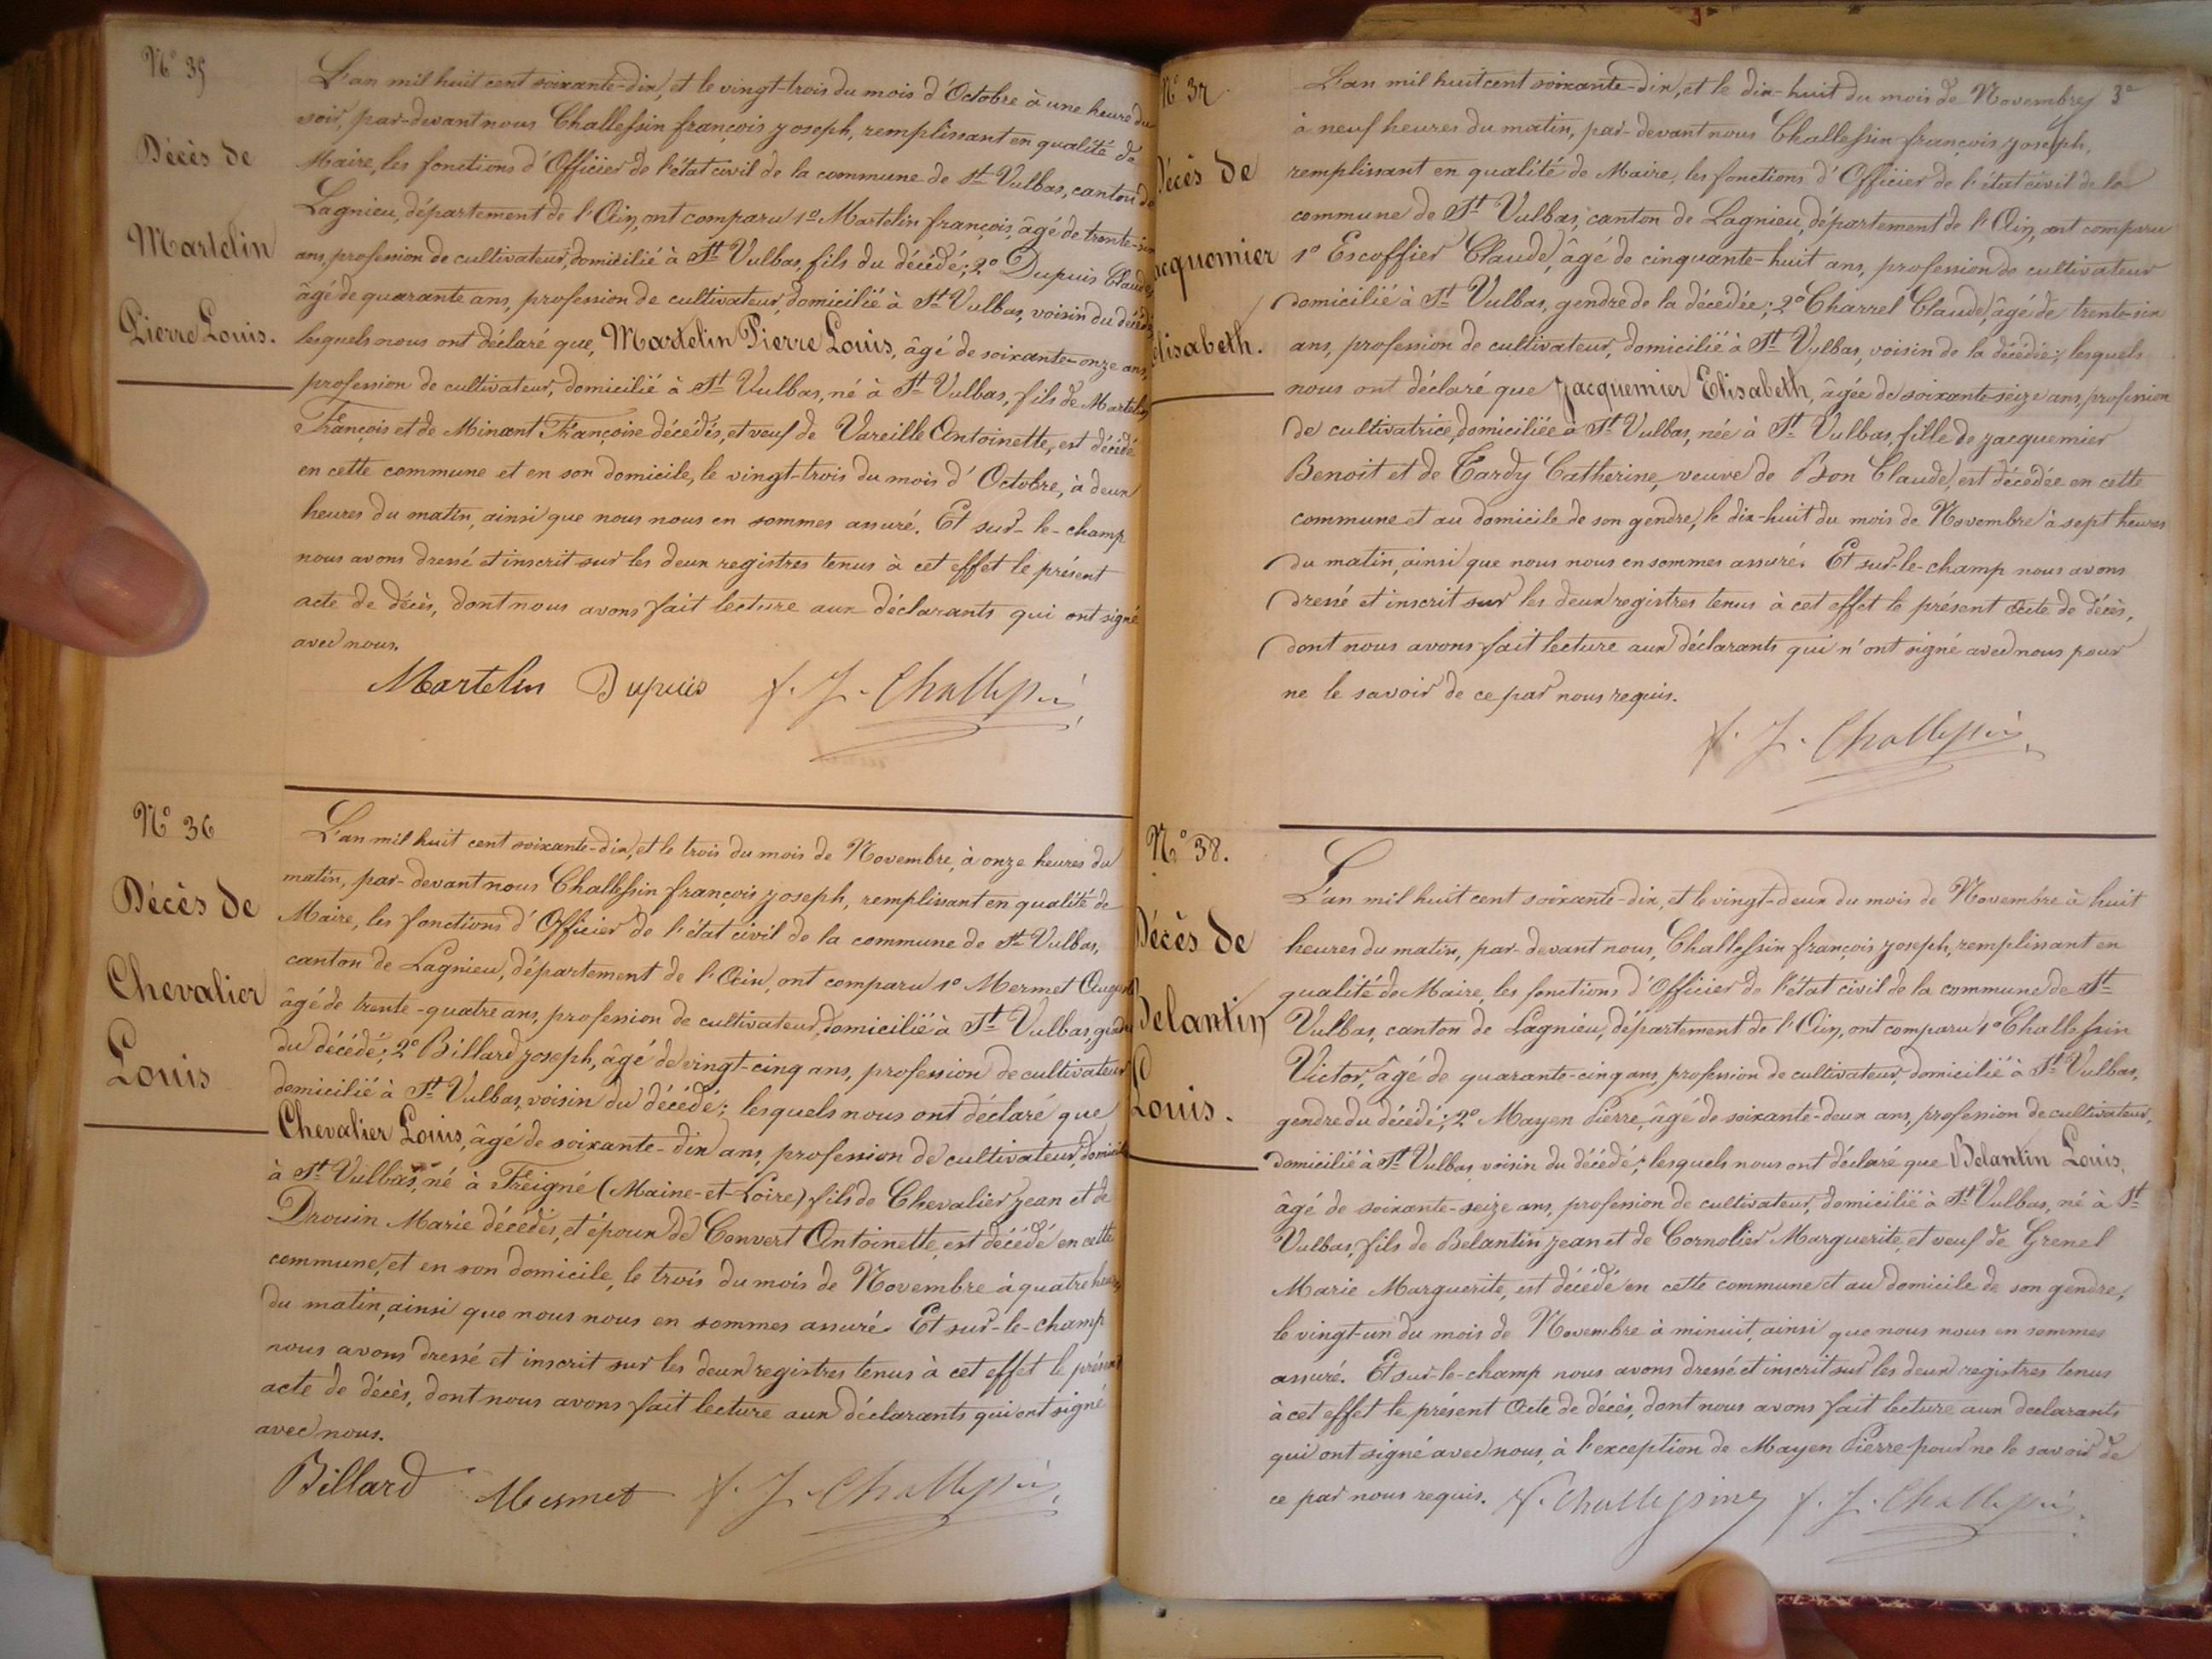 N° 35
Décès de
Martelin
Pierre Louis.
L'an mil huit cent soixante-dix, et le vingt-trois du mois d'Octobre à une heure du
soir, par-devant nous Challessin françois joseph, remplissant en qualité de
Maire, les fonctions d'Officier de l'état civil de la commune de St Vulbas, canton de
Lagnieu, département de l'Ain, ont comparu 1° Martelin françois, âgé de trente-six
ans, profession de cultivateur, domicilié à St Vulbas, fils du décédé; 2° Dupuis Claude,
âgé de quarante ans, profession de cultivateur, domicilié à St Vulbas, voisin du décédé
lesquels nous ont déclaré que, Martelin Pierre Louis, âgé de soixante-onze ans,
profession de cultivateur, domicilié à St Vulbas, né à St Vulbas, fils de Martelin
François et de Minant Françoise décédés, et veuf de Vareille Antoinette, est décédé
en cette commune et en son domicile, le vingt-trois du mois d'Octobre, à deux
heures du matin, ainsi que nous nous en sommes assuré. Et sur-le-champ
nous avons dressé et inscrit sur les deux registres tenus à cet effet le présent
acte de décès, dont nous avons fait lecture aux déclarants qui ont signé
avec nous.
Martelin Dupuis f. J. Challessin
N° 36
Décès de
Chevalier
Louis
L'an mil huit cent soixante-dix, et le trois du mois de Novembre, à onze heures du
matin, par-devant nous Challessin françois joseph, remplissant en qualité de
Maire, les fonctions d'Officier de l'état civil de la commune de St Vulbas,
canton de Lagnieu, département de l'Ain, ont comparu 1° Mermet
âgé de trente-quatre ans, profession de cultivateur, domicilié à St Vulbas, gendre
du décédé; 2° Billard joseph, âgé de vingt-cinq ans, profession de cultivateur
domicilié à St Vulbas, voisin du décédé; lesquels nous ont déclaré que
Chevalier Louis, âgé de soixante-dix ans, profession de cultivateur, domicilié
à St Vulbas, né à Freigné (Maine-et-Loire) fils de Chevalier jean et de
Drouin Marie décédés, et époux de Convert Antoinette, est décédé en cette
commune, et en son domicile, le trois du mois de Novembre à quatre heures
du matin, ainsi que nous nous en sommes assuré. Et sur-le-champ
nous avons dressé et inscrit sur les deux registres tenus à cet effet le présent
acte de décès, dont nous avons fait lecture aux déclarants qui ont signé
avec nous.
Billard Mermet f. J. Challessin
N° 37
Décès de
Jacquemier
Elisabeth.
L'an mil huit cent soixante-dix, et le dix-huit du mois de Novembre,
à neuf heures du matin, par-devant nous Challessin françois joseph,
remplissant en qualité de Maire, les fonctions d'Officier de l'état civil de la
commune de St Vulbas, canton de Lagnieu, département de l'Ain, ont comparu
1° Escoffier Claude, âgé de cinquante-huit ans, profession de cultivateur
domicilié à St Vulbas, gendre de la décédée; 2° Charrel Claude, âgé de trente-six
ans, profession de cultivateur, domicilié à St Vulbas, voisin de la décédée; lesquels
nous ont déclaré que Jacquemier Elisabeth, âgée de soixante-seize ans, profession
de cultivatrice, domiciliée à St Vulbas, née à St Vulbas, fille de jacquemier
Benoit et de Tardy Catherine, veuve de Bon Claude, est décédée en cette
commune et au domicile de son gendre, le dix-huit du mois de Novembre à sept heures
du matin, ainsi que nous nous en sommes assuré. Et sur-le-champ nous avons
dressé et inscrit sur les deux registres tenus à cet effet le présent acte de décès,
dont nous avons fait lecture aux déclarants qui n'ont signé avec nous pour
ne le savoir de ce par nous requis.
f. J. Challessin
N° 38.
Décès de
Belantin
Louis.
L'an mil huit cent soixante-dix, et le vingt-deux du mois de Novembre à huit
heures du matin, par-devant nous, Challessin françois joseph, remplissant en
qualité de Maire, les fonctions d'Officier de l'état civil de la commune de St
Vulbas, canton de Lagnieu, département de l'Ain, ont comparu 1° Challessin
Victor, âgé de quarante-cinq ans, profession de cultivateur, domicilié à St Vulbas,
gendre du décédé; 2° Mayen Pierre, âgé de soixante-deux ans, profession de cultivateur,
domicilié à St Vulbas voisin du décédé; lesquels nous ont déclaré que Belantin Louis,
âgé de soixante-seize ans, profession de cultivateur, domicilié à St Vulbas, né à St
Vulbas, fils de Belantin jean et de Cornolier Marguerite, et veuf de Grenel
Marie Marguerite, est décédé en cette commune et au domicile de son gendre,
le vingt-un du mois de Novembre à minuit, ainsi que nous nous en sommes
assuré. Et sur-le-champ nous avons dressé et inscrit sur les deux registres tenus
à cet effet le présent acte de décès, dont nous avons fait lecture aux déclarants
qui ont signé avec nous, à l'exception de Mayen Pierre pour ne le savoir de
ce par nous requis. f. J. Challessin